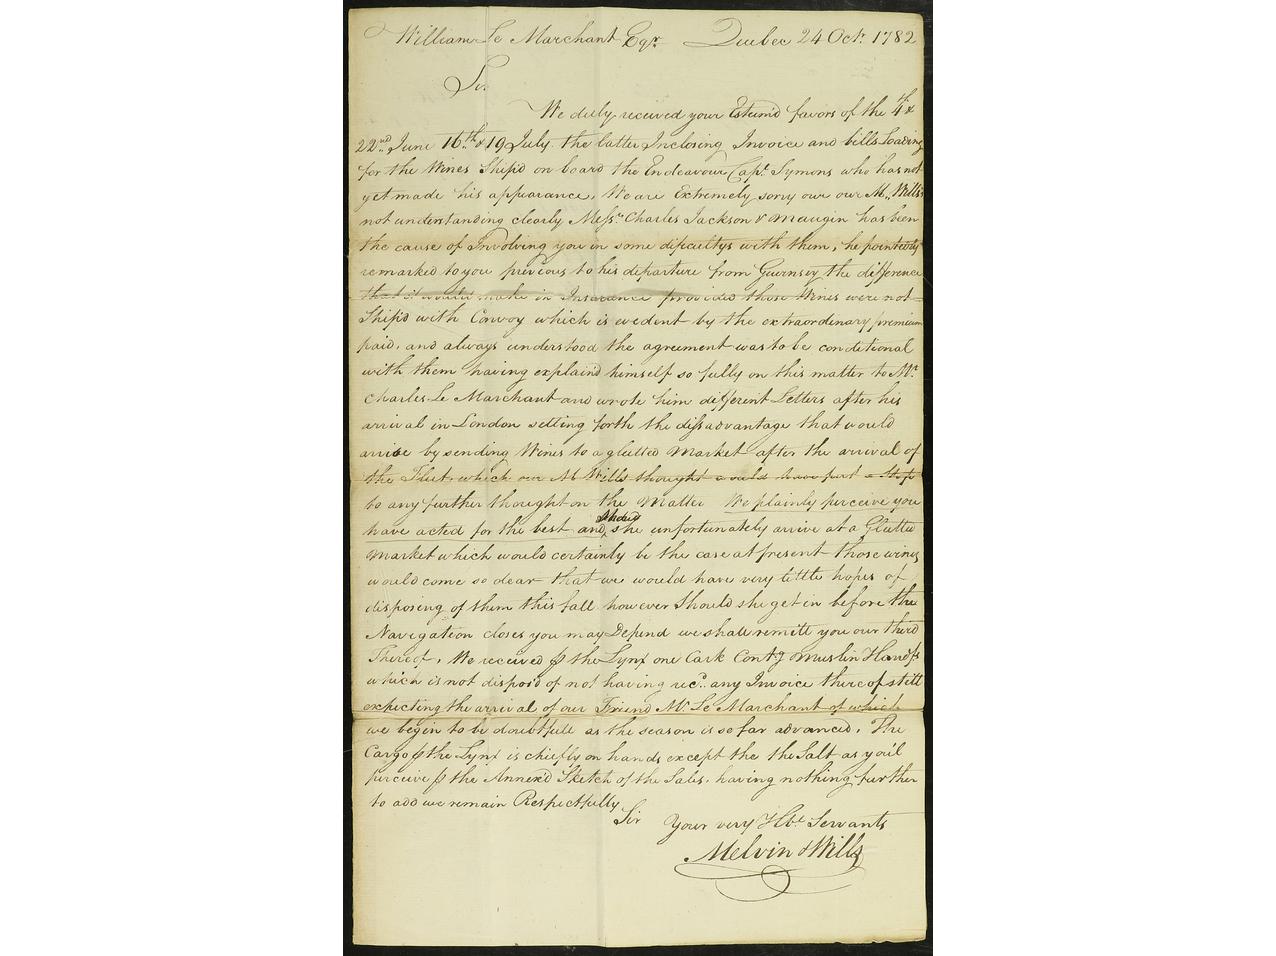 William Le Marchant Esqr. Quebec 24 Octr. 1782
Sir.
We duly received your Esteem'd favors of the 4th &
22nd June 16th & 19 July the latter Inclosing Invoice and bills Loading
for the Wines Ship'd on board the Endeavour Capt. Symons who has not
yet made his appearance, We are Extremely sorry our Mr. Wills
not understanding clearly Messrs. Charles Jackson & Maugin has been
the cause of Involving you in some dificultys with them, he pointedly
remarked to you previous to his departure from Guernsey the difference
that it would make in Insurance provided those Wines were not
Ship'd with Convoy which is evedent by the extraordenary premium
paid, and always understood the agreement was to be conditional
with them having explaind himself so fully on this matter to Mr.
Charles Le Marchant and wrote him different Letters after his
arrival in London setting forth the dissadvantage that would
arrise by sending Wines to a glutted Market after the arrival of
the Fleet, which our M Wills thought would have put a Stop
to any further thought on the Matter We plainly perceive you
have acted for the best and should she unfortunately arrive at a Glutted
Market which would certainly be the case at present those wines
would come so dear that we would have very little hopes of
disposing of them this fall however should she get in before the
Navigation closes you may Depend we shall remitt you our third
Thereof, We received ⅌ the Lynx one Cask Contg. Muslin Handfs
which is not dispos'd of not having recd. any Invoice thereof still
expecting the arrival of our Friend Mr. Le Marchant of which
we begin to be doubtfull as the season is so far advanced, The
Cargo ⅌ the Lynx is chiefly on hands except the the Salt as you'l
perceive ⅌ the Annex'd Sketch of the Sales, having nothing further
to add we remain Respectfully
Sir Your very Hble. Servants
Melvin & Wills